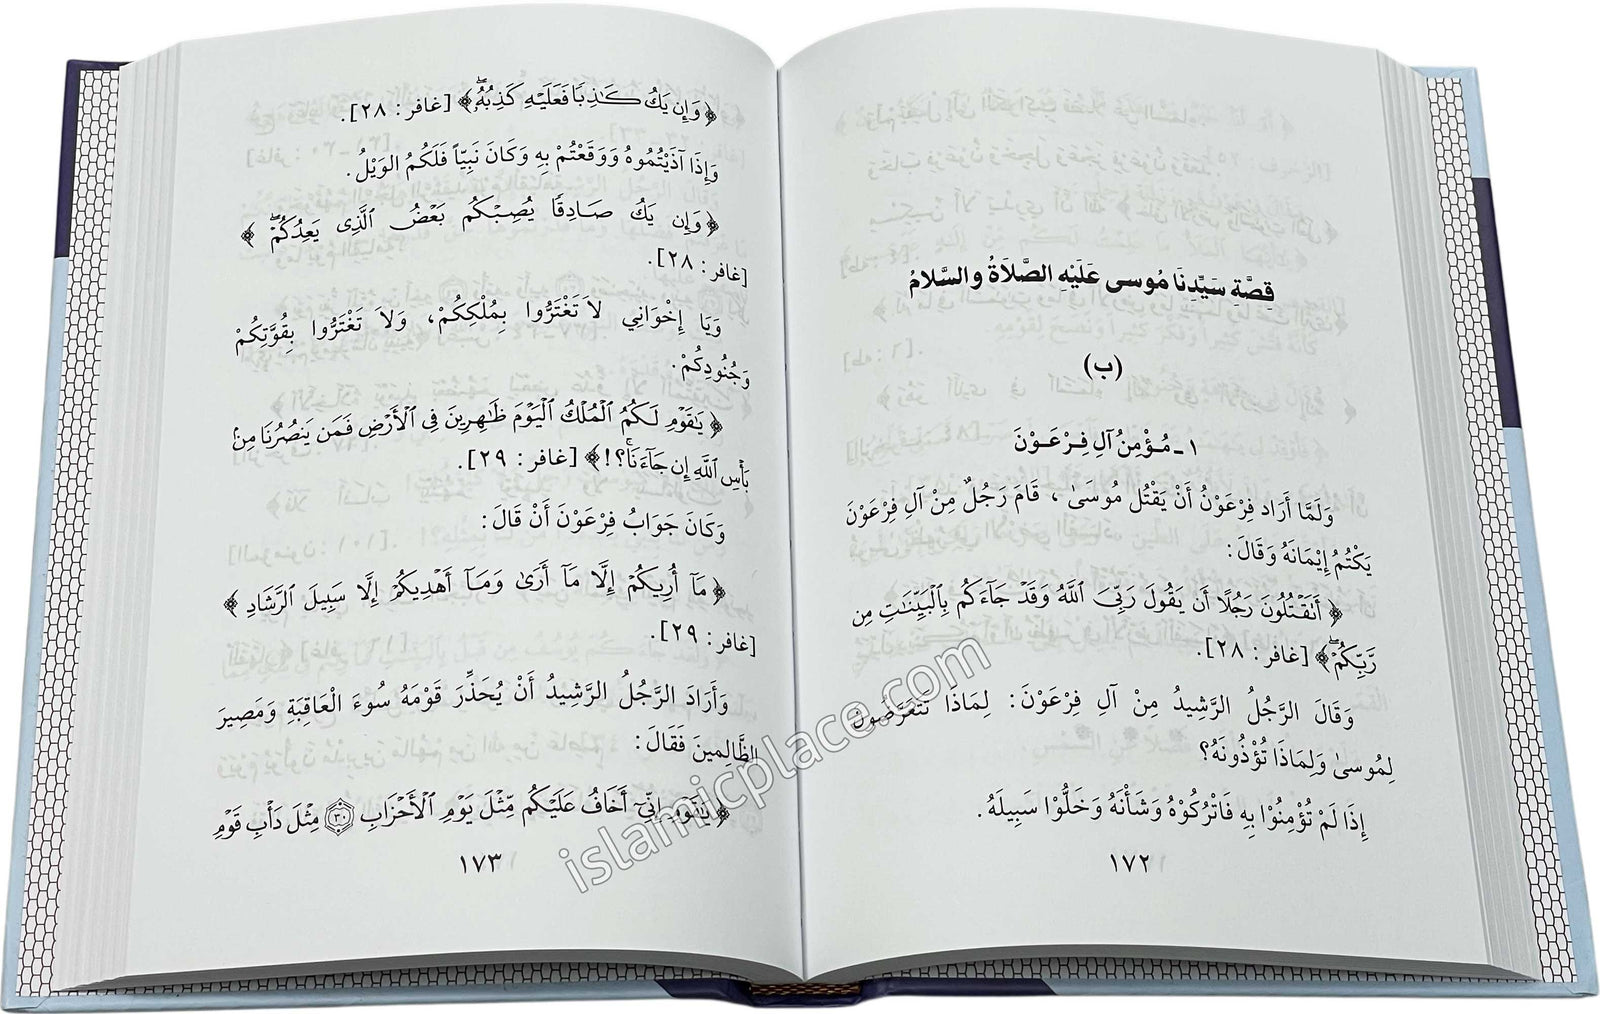 قِصَّةِ سَيِّدِنَا مُوسى عَلَيْهِ الصَّلَاةُ والسَّلامُ
(ب)
١ ـ مُؤْمِنُ آلِ فِرْعَوْنَ
وَلَمَّا أَرَاد فِرْعَوْنُ أَنْ يَقْتُل مُوسَىٰ ، قَامَ رَجُلٌ مِنْ آلِ فِرْعَوْنَ
يَكْتُمُ إِيْمَانَهُ وَقَالَ:
﴿ أَتَقْتُلُونَ رَجُلًا أَن يَقُولَ رَبِّيَ ٱللَّهُ وَقَدْ جَآءَكُم بِٱلْبَيِّنَٰتِ مِن
رَّبِّكُمْ ۖ﴾ [غافر: ٢٨].
وَقَالَ الرَّجُلُ الرَّشِيدُ مِنْ آلِ فِرْعَوْنَ: لِمَاذَا تَتَعَرَّضُونَ
لِمُوسىٰ وَلِمَاذَا تُؤْذُونَهُ؟
إِذَا لَمْ تُؤْمِنُوْا بِهِ فَاتْرُكُوْهُ وَشَأْنَهُ وَخَلُّوْا سَبِيلَهُ .
١٧٢
﴿ وَإِن يَكُ كَٰذِبًا فَعَلَيْهِ كَذِبُهُۥ ۖ﴾ [غافر: ٢٨].
وَإِذَا آذَيْتُمُوهُ وَوَقَعْتُمْ بِهِ وَكَانَ نَبِيّاً فَلَكُمُ الوَيْلُ.
﴿ وَإِن يَكُ صَادِقًا يُصِبْكُم بَعْضُ ٱلَّذِى يَعِدُكُمْ ۖ ﴾
[غافر: ٢٨].
وَيَا إِخْوَانِي لاَ تَغْتَرُّوا بِمُلْكِكُمْ، وَلاَ تَغْتَرُّوا بِقُوَّتِكُمْ
وَجُنُودِكُمْ.
﴿ يَٰقَوْمِ لَكُمُ ٱلْمُلْكُ ٱلْيَوْمَ ظَٰهِرِينَ فِى ٱلْأَرْضِ فَمَن يَنصُرُنَا مِنۢ
بَأْسِ ٱللَّهِ إِن جَآءَنَا ۚ؟!﴾ [غافر: ٢٩].
وَكَانَ جَوَابُ فِرْعَوْنَ أَنْ قَالَ:
﴿ مَآ أُرِيكُمْ إِلَّا مَآ أَرَىٰ وَمَآ أَهْدِيكُمْ إِلَّا سَبِيلَ ٱلرَّشَادِ ﴾
[غافر: ٢٩].
وَأَرَادَ الرَّجُلُ الرَّشِيدُ أَنْ يُحَذِّرَ قَوْمَهُ سُوءَ الْعَاقِبَةِ وَمَصِيرَ
الظَّالِمِينَ فَقَالَ:
﴿ يَٰقَوْمِ إِنِّىٓ أَخَافُ عَلَيْكُم مِّثْلَ يَوْمِ ٱلْأَحْزَابِ ۝٣٠ مِثْلَ دَأْبِ قَوْمِ
١٧٣
islamicplace.com